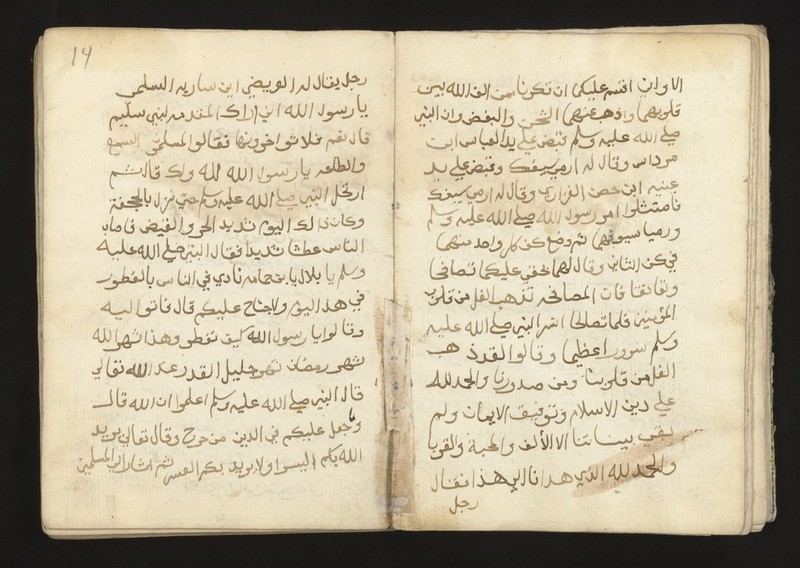 الاوان اقسم عليكما ان تكونا من الف الله بين
قلوبهما واذهب عنهما الشحن والبغض وان النبي
صلي الله عليه وسلم قبض علي يد العباس ابن
مرداس وقال له ارمي سيفك وقبض علي يد
عنبه ابن حصن الفزاري وقال له ارمي سيفك
فامتثلوا امر رسول الله صلي الله عليه وسلم
ورميا سيوفهما ثم وضع كف كل واحد منهما
في كف الثاني وقال لهما بحقي عليكما تصافحا
وتعانقا فان المصافحه تذهب الغل من قلوب
المؤمنين فلما تصالحا اسر النبي صلي الله عليه
وسلم سرورا عظيما وقالوا لقد ذهب
الغل من قلوبنا ومن صدورنا والحمد لله
علي دين الاسلام وتوفيق الايمان ولم
يبقي بيننا الا الالف والمحبة والقربا
والحمد لله الذي هدانا الي هذا فقال
رجل
14
رجل يقال له العريضي ابن ساريه السلمي
يا رسول الله اني اراك المقدمه لبني سليم
قال نعم فلا تواخرونها فقالوا المسلمين السمع
والطاعه يا رسول الله لله ولك قال ثم
ارتحل النبي صلي الله عليه وسلم حتي نزل بالجحفة
وكان ذلك اليوم شديد الحر والقيض فاصاب
الناس عطشا شديدا فقال النبي صلي الله عليه
وسلم يا بلال يا بن حمامه نادي في الناس بالفطور
في هذا اليوم ولا جناح عليكم قال فاتوا اليه
وقالوا يا رسول الله كيف نفطر وهذا شهر الله
شهر رمضان شهر جليل القدر عند الله تعالي
قال النبي صلي الله عليه وسلم اعلموا ان الله قال
وما جعل عليكم في الدين من حرج وقال تعالي يريد
الله بكم اليسر ولا يريد بكم العسر ثم اشار الي المسلمين